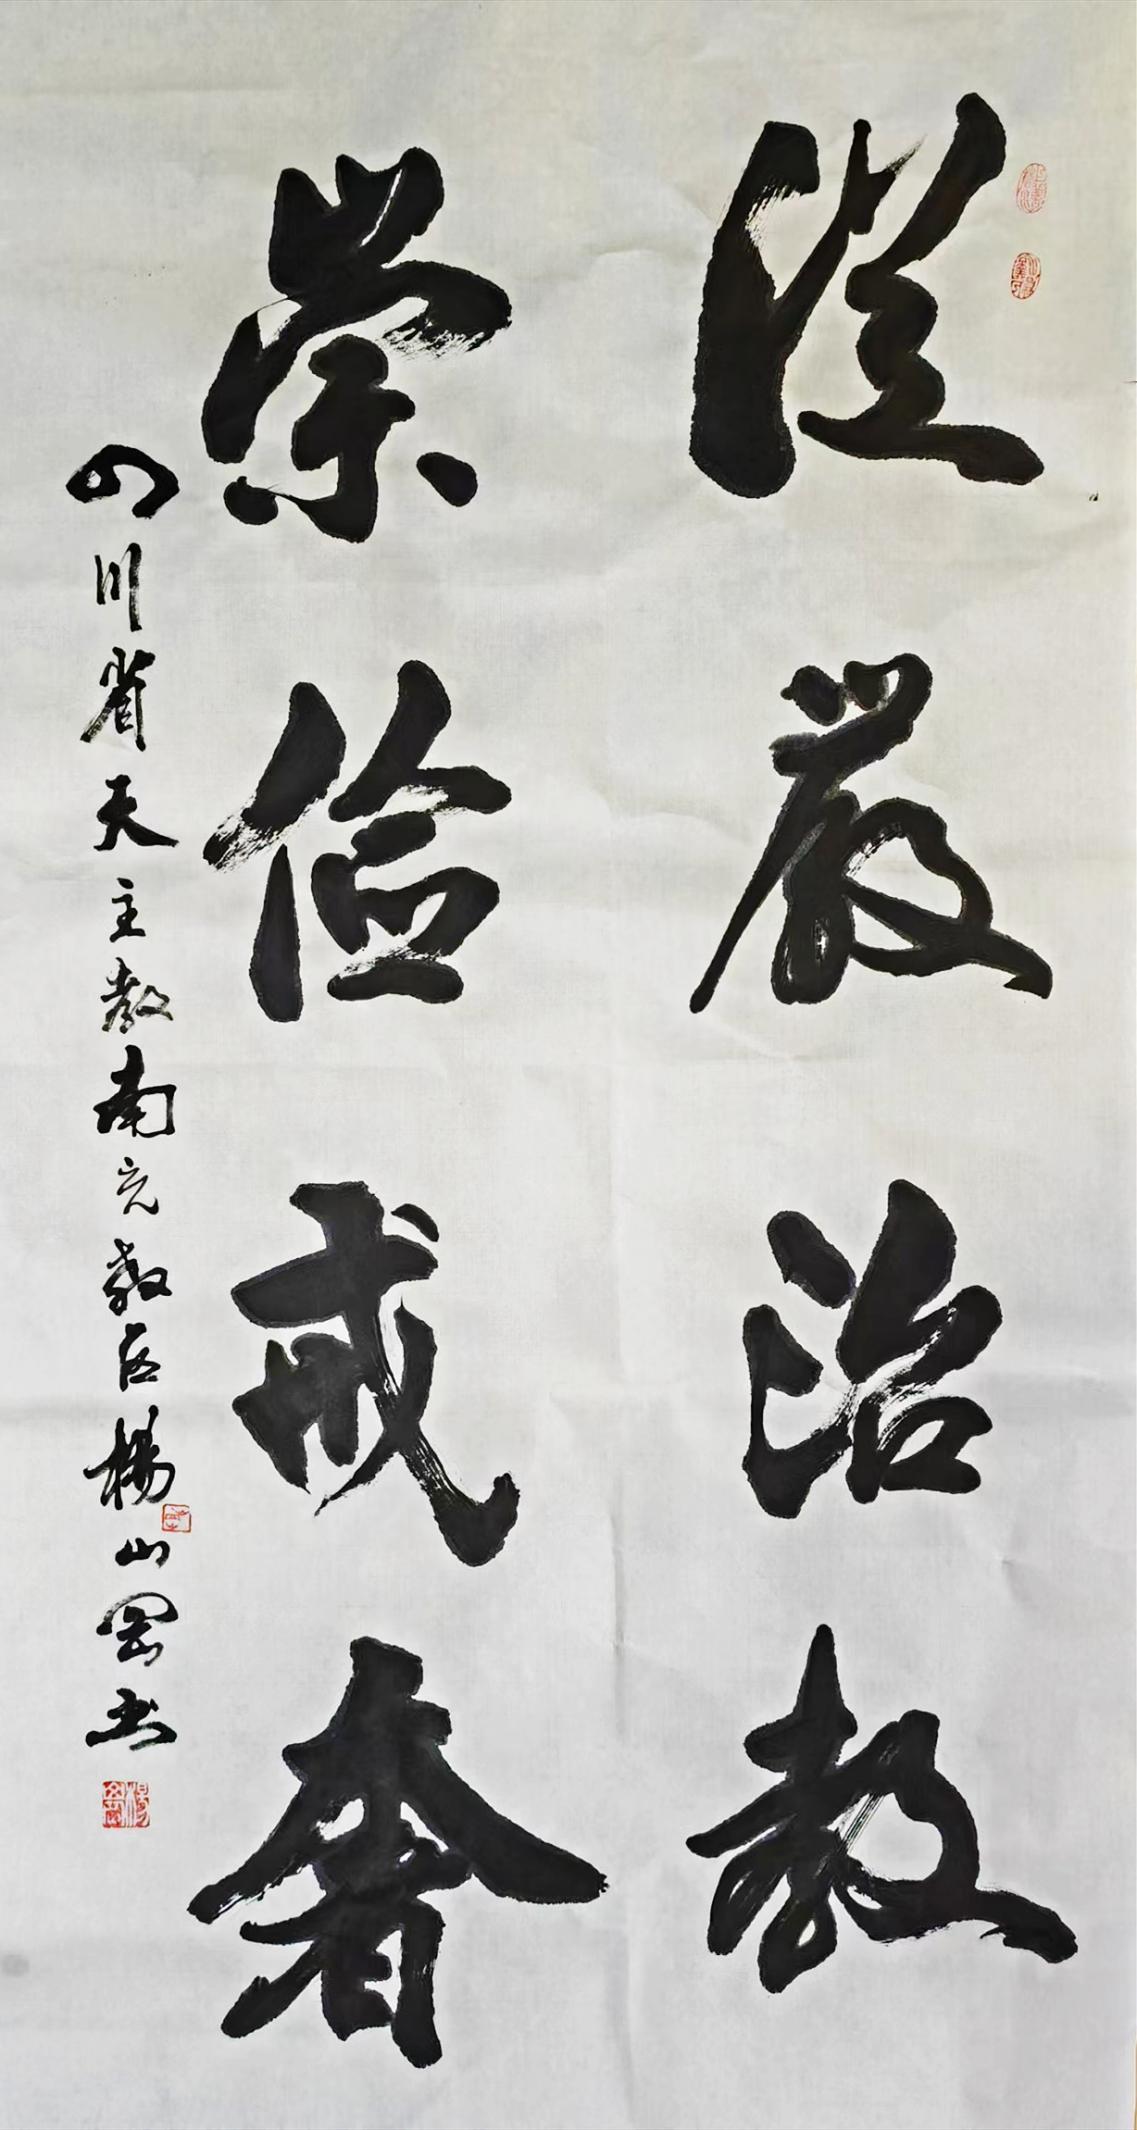 從嚴治教
崇儉戒奢
四川省天主教南充教区楊山岡书